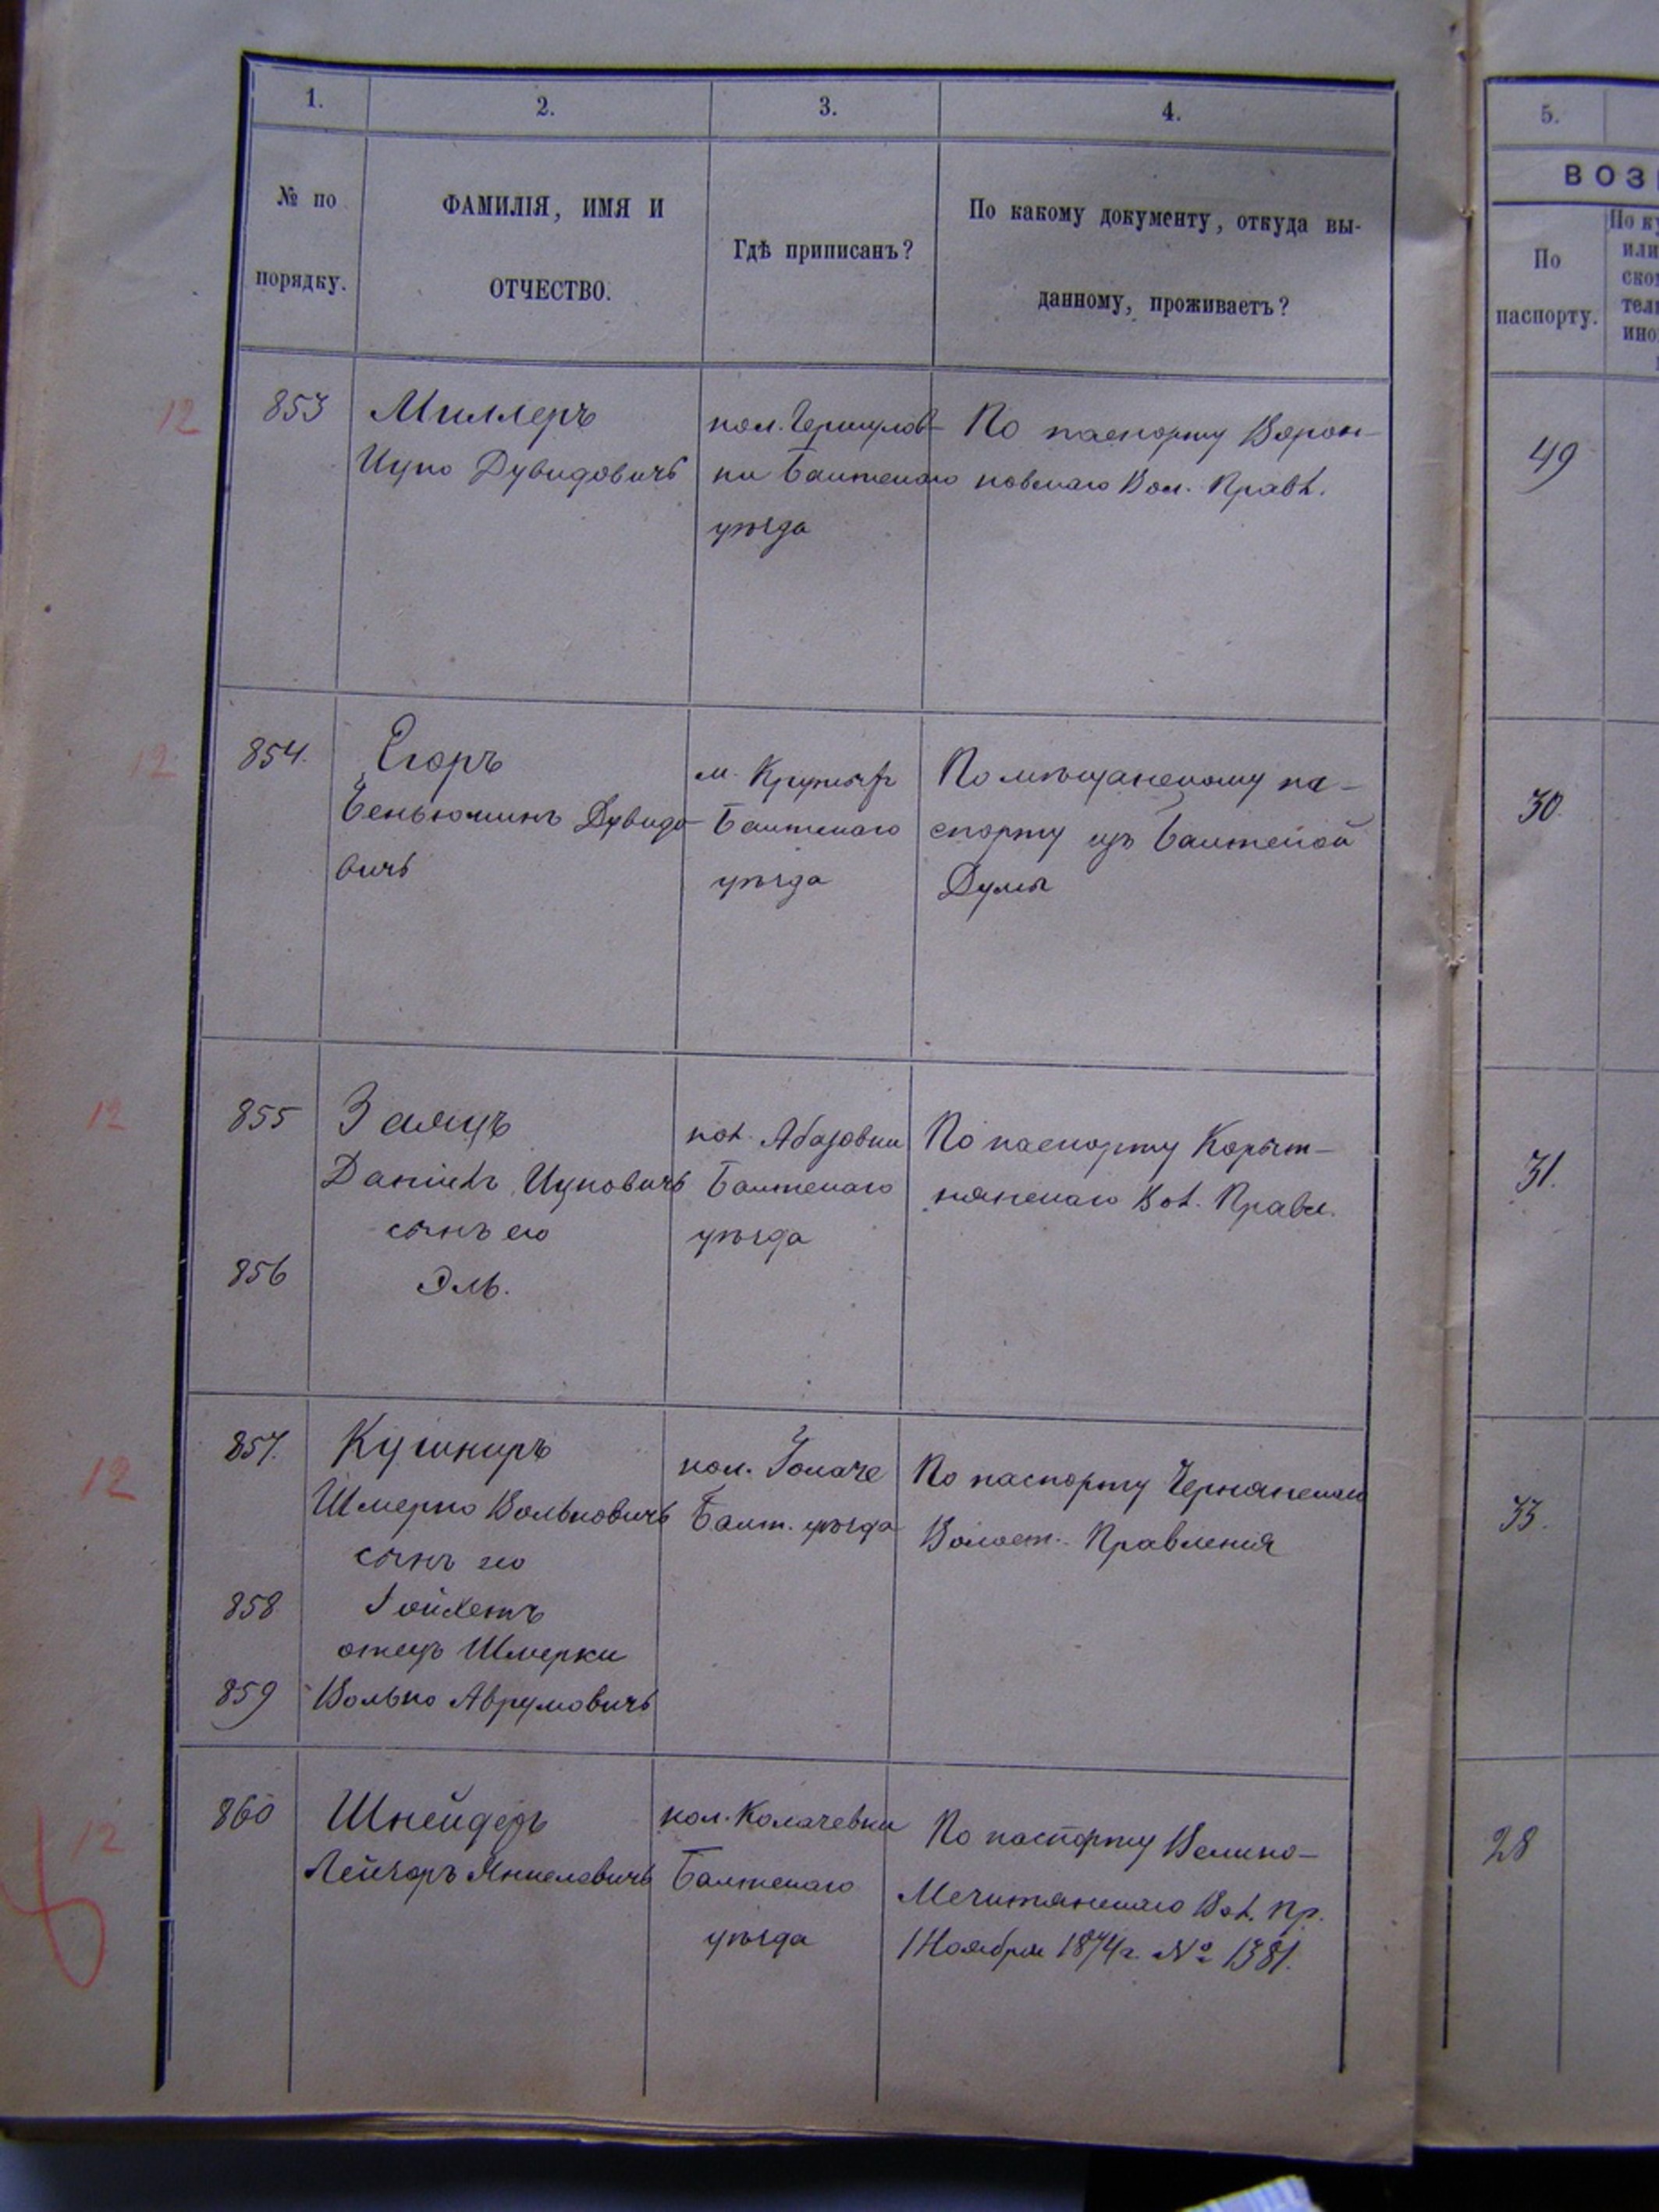 1.
2.
3.
4.
5.
№ по
порядку.
ФАМИЛІЯ, ИМЯ И
ОТЧЕСТВО.
Гдѣ приписанъ?
По какому документу, откуда вы-
данному, проживаетъ?
ВОЗ
По
паспорту.
По ку
или
ско
тел
ино
12
853
Миллеръ
Ицко Дувидовичъ
кол. Гершулов-
ки Балтскаго
уѣзда
По паспорту Ворон-
ковскаго Вол. Правл.
49
12
854.
Егоръ
Беньюминъ Дувидо-
вичъ
м. Крутыхъ
Балтскаго
уѣзда
По мѣщанскому па-
спорту изъ Балтской
Думы
30.
12
855
Заяцъ
Даніилъ Ицковичъ
сынъ его
856
Эль.
кол. Абазовки
Балтскаго
уѣзда
По паспорту Корыт-
нянскаго Вол. Правл.
31.
12
857.
Кушниръ
Шмерко Вольковичъ
сынъ его
858
Гойхетъ
отецъ Шмерки
859
Волько Аврумовичъ
кол.
Балт. уѣзда
По паспорту Чернянскаго
Волост. Правленія
33.
12
860
Шнейдеръ
Лейзоръ Янкелевичъ
кол. Колачевки
Балтскаго
уѣзда
По паспорту Велико-
Мечитянскаго Вол. Пр.
1 Ноября 1874 г. № 1381.
28